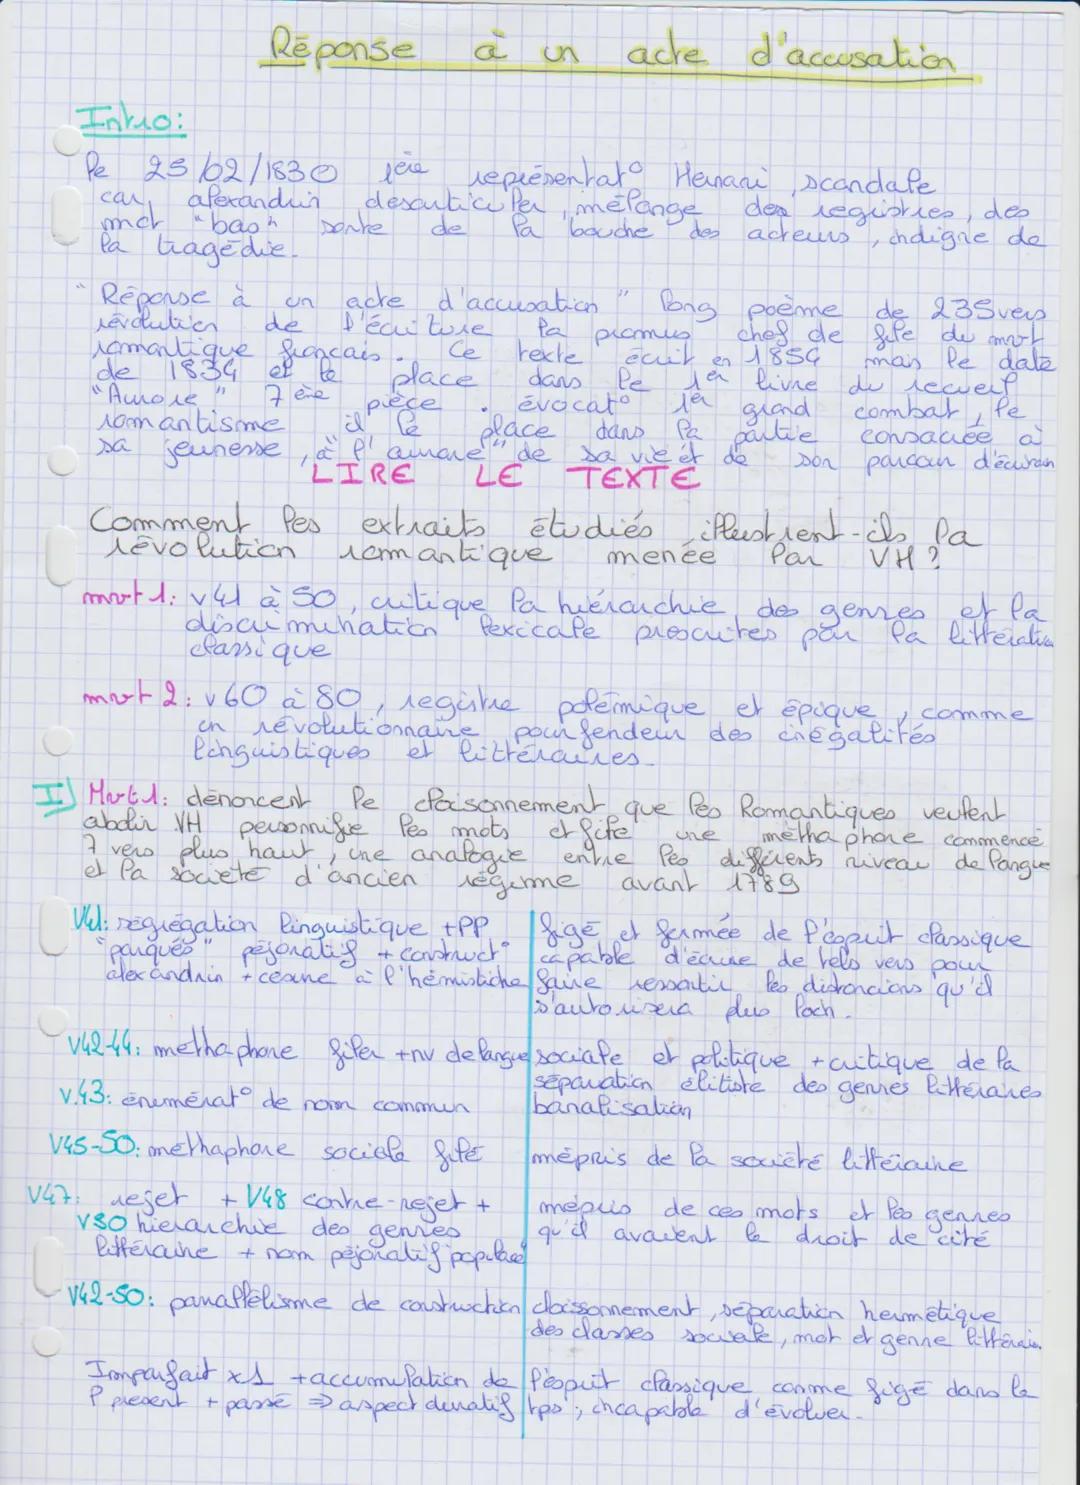 Réponse à un acte d'accusation
Intro:
Le 25/02/1830 1ère représentat° Hernani, scandale
car alexandrin desarticuler, mélange des registres, des
mot "bas" sorte de la bouche des acteurs, indigne de
la tragédie.
"Réponse à un acte d'accusation" long poème de 235 vers
révolution de l'écriture la promus chef de file du mvt
romantique français. Ce texte écrit en 1854 mais le date
de 1834 et le place dans le 1er livre du recueil
"Aurore" 7ème pièce. évocat° 1er grand combat, le
romantisme il le place dans la partie consacrée à
sa jeunesse, à "l'aurore" de sa vie et de son parcour d'écrivain
LIRE LE TEXTE
Comment les extraits étudiés illustrent-ils la
révolution romantique menée par VH?
mvt 1: v41 à 50, critique la hiérarchie des genres et la
discrimination lexicale proscrites par la littérature
classique
mvt 2: v60 à 80, registre polémique et épique, comme
un révolutionnaire pourfendeur des inégalités
linguistiques et littéraires.
I) Mvt 1: dénoncent le cloisonnement que les Romantiques veulent
abolir VH personnifie les mots et file une méthaphore commencé
7 vers plus haut, une analogie entre les différents niveau de langue
et la société d'ancien régime avant 1789
V41: ségrégation linguistique + PP figé et fermée de l'esprit classique
"parqués" péjoratif + construct° capable d'écrire de tels vers pour
alexandrin + césure à l'hémistiche faire ressortir les distorcions qu'il
s'autorisera plus loch.
V42-44: méthaphore filer + nv de langue sociale et politique + critique de la
séparation élitiste des genres littéraires
V.43: énumérat° de nom commun banalisation
V45-50: méthaphore sociale filé mépris de la société littéraire
V47: rejet + V48 contre-rejet + mépris de ces mots et les genres
V50 hiérarchie des genres qu'il avaient le droit de cité
littéraire + nom péjoratif populace
V42-50: parallélisme de construction cloisonnement, séparation hermétique
des classes sociale, mot et genre littérair.
Imparfait x1 + accumulation de l'esprit classique comme figé dans le
P present + passé ⇒ aspect duratif tps, incapable d'évoluer.